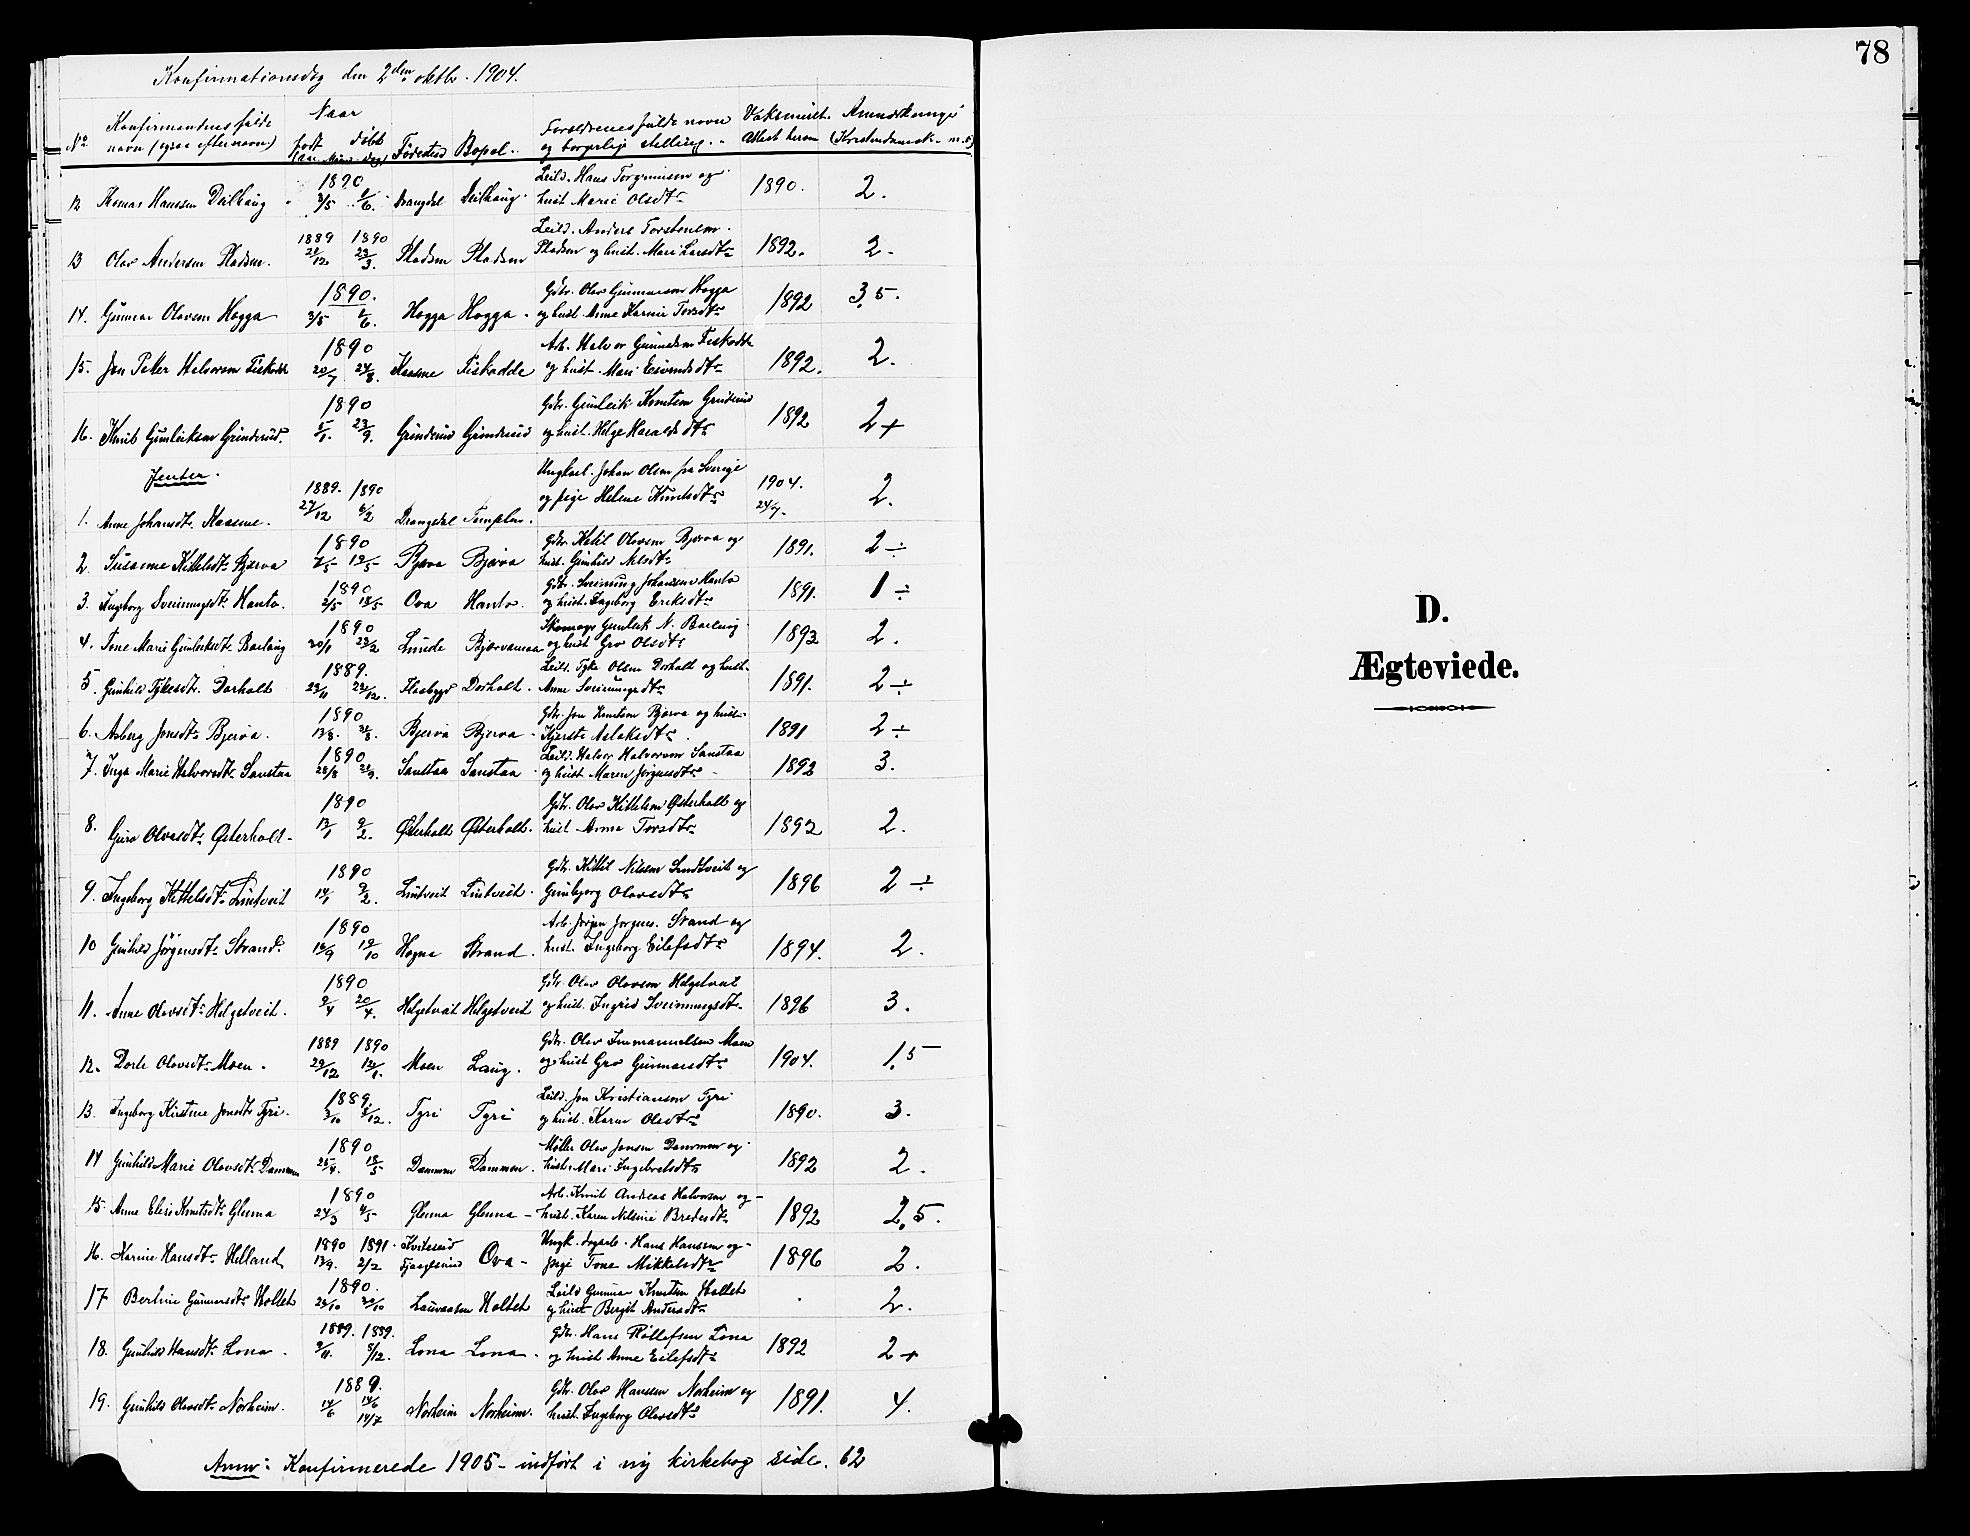 78
Konfirmationsdag den 2den oktbr. 1904.
No Konfirmandens fulde navn (ogsaa efternavn) Naar født døbt Fødested Bopæl. Forældrenes fulde navn og borgerlige stilling. Vaksineret. Attest herom Anmerkninger (Kristendomsk. m.v.)
12 Hanssen Deilhaug 1890 3/5 1/6. Drangdal Deilhaug Leild. Hans og hust. Marie Olsdtr 1890. 2.
13 Olav Andersen Pladsen. 1889 1890 21/12 23/3. Pladsen Pladsen Leild. Anders Torstensen Pladsen og hust. Mari Larsdtr 1892. 2.
14. Gunnar Olavsen Hogga 1890. 3/5 1/6. Hogga Hogga Gbr. Olav Gunnarsen Hogga og hust. Anne Karine Torsdtr 1892 3,5.
15. Jon Peter Halvorsen Fiskodde 1890 20/7 24/8. Kaasene Fiskodde Arb. Halvor Gunnulsen Fiskodde og hust. Mari Eivindsdtr 1892. 2.
16. Knut Gunleiksen Grinderud. 1890 5/1. 23/9. Grinderud Grinderud Gbr. Gunleik Knutsen Grinderud og hust. Helge Haraldsdtr 1892 2+
Jenter.
1. Anne Johansdtr Kaasene. 1889. 1890 27/12 6/2 Drangedal Tempelen. Ungkarl. Johan Olsen fra Sverige og pige Helene Knutsdtr 1904. 24/7. 2.
2. Susanne Kittelsdtr Bjørva 1890 7/5 19/5 Bjørva Bjørva Gbr. Kittil Olavsen Bjørva og hust. Gunhild Nilsdtr 1891. 2÷
3. Ingeborg Sveinungsdtr Hanto. 1890 2/5 18/5 Ova Hanto. Gbr. Sveinung Johansen Hanto og hust. Ingeborg Eriksdtr 1891. 1÷
4. Tone Marie Gunleiksdtr Barlaug 1890 20/1 23/2 Lunde Bjørvamoen Skomager Gunleik N. Barlaug og hust Gro Olsdtr 1893 2.
5. Gunhild Tykesdtr. Dorholt 1889. 23/11 22/12. Flaabygd Dorholt. Leild. Tyke Olsen Dorholt og hust. Anne Sveinungsdtr 1891. 2÷
6. Asberg Jonsdtr Bjørva. 1890 13/8. 31/8. Bjørva Bjørva Gbr. Jon Knutsen Bjørva og hust. Kjersti Aslaksdtr 1891 2÷
7. Inga Marie Halvorsdtr Sanstaa 1890 28/8 21/9. Sanstaa Sanstaa Leild. Halvor Halvorsen Sanstaa og hust Maren Jørgensdtr 1892 3.
8. Guro Olavsdtr Østerholt 1890 13/1 9/2. Østerholt Østerholt. Gbr. Olav Kittelsen Østerholt og hust. Anne Torsdtr 1892 2.
9. Ingeborg Kittelsdtr Lindtveit 1890 14/1 9/2. Lintveit Lintveit. Gbr. Kittil Nilssen Lindtveit og Gunbjørg Olavsdtr 1896 2÷
10 Gunhild Jørgensdtr Strand. 1890 16/9 19/10 Hogna Strand. Arb. Jørgen Jørgens. Strand og hust. Ingeborg Eilefsdtr 1894. 2.
11. Anne Olavsdtr Helgetveit. 1890 9/4 20/4. Helgetveit Helgetveit Gbr. Olav Olavsen Helgetveit og hust. Ingrid Sveinungsdtr 1896 3.
12. Dorte Olavsdtr Moen. 1889 1890 29/12 12/1. Moen Laug. Gbr. Olav Immanuelsen Moen og hust Gro Gunnarsdtr 1904. 1,5
13. Ingeborg Kirstine Jonsdtr Tyri. 1889. 3/10 /12. Tyri Tyri Leild. Jon Kristiansen Tyri og hust. Karen Olsdtr 1890. 3.
14 Gunhild Marie Olavsdtr Dammen 1890 25/4. 18/5 Dammen Dammen. Møller Olav Jonsen Dammen og hust. Mari Ingebretsdtr 1892 2.
15. Anne Elise Knutsdtr Glenna 1890 24/3 4/5 Glenna Glenna Arb. Knut Andreas Halvorsen og hust. Karen Nilsine Bredesdtr 1892 2,5.
16. Karine Hansdtr Helland 1890 1891. 13/9. 2/2 Kviteseid Ova Ungk. dagarb. Hans Hanssen og pige Tone Mikkelsdtr 1896 2.
17 Bertine Gunnarsdtr Holtet 1890. 28/10 30/10 Lauvaasen Holtet Leild Gunnar Knutsen Holtet og hust Bergit Andersdtr 2.
18. Gunhild Hansdtr Lona. 1889. 1889. 9/11. 8/12. Lona Lona Gbr. Hans Rollefsen Lona og hust Anne Eilefsdtr 1892 2+
19. Gunhild Olavsdtr Norheim. 1889. 14/6 14/6 14/7 Norheim Norheim. Gbr. Olav Hanssen Norheim og hust. Ingeborg Olavsdtr 1891. 4.
Anm: Konfirmerede 1905 - indført i ny kirkebog side. 62
D.
Ægteviede.